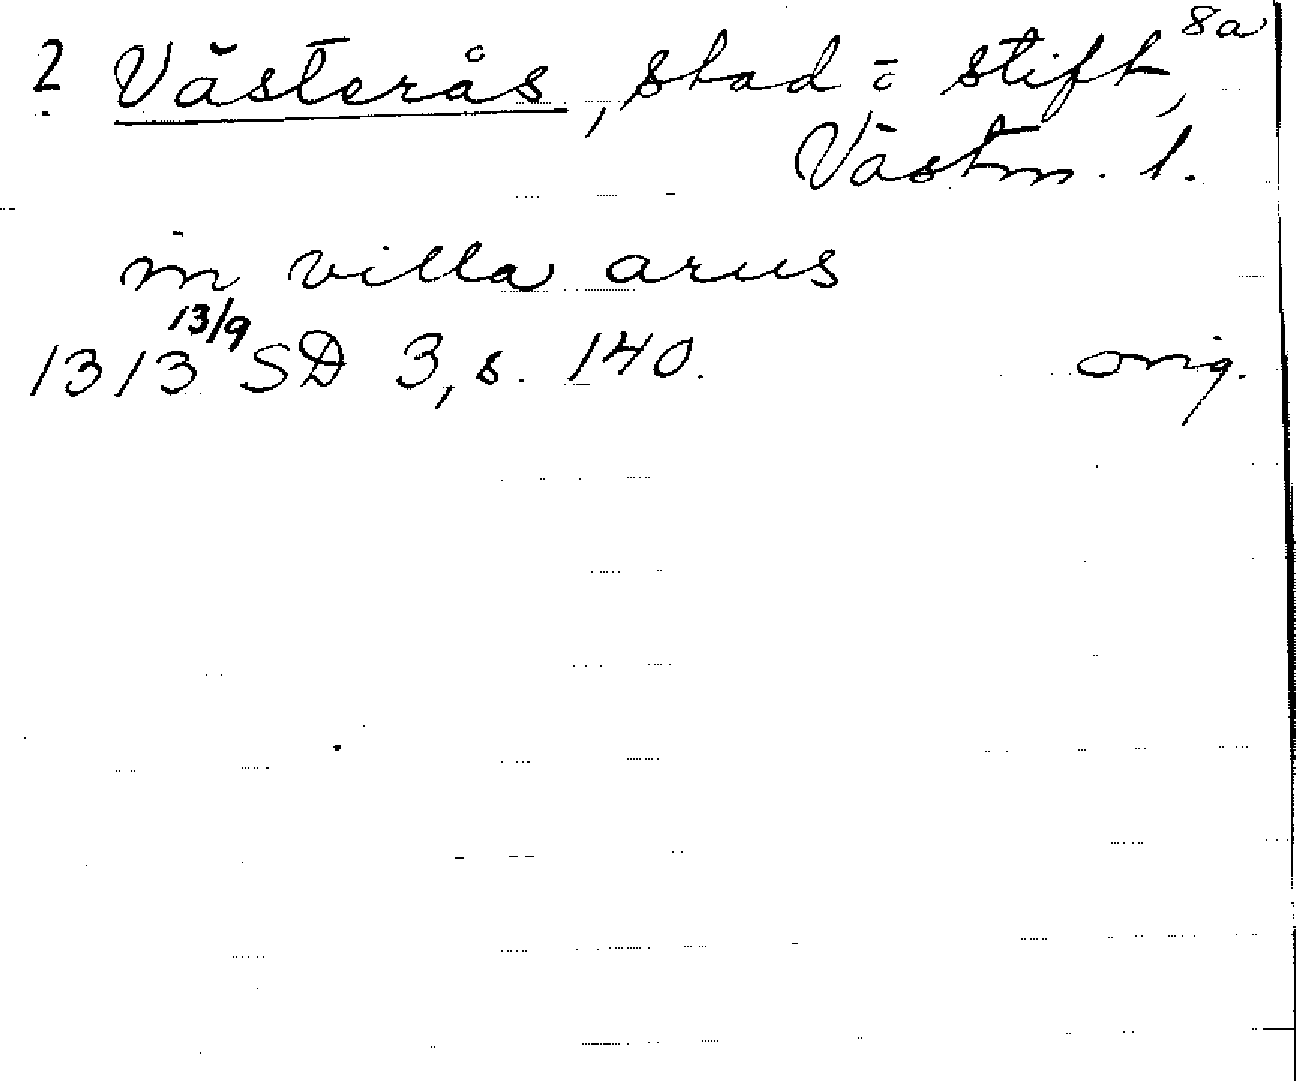 8a
2. Västerås, stad o. stift,
Västm. l.
in villa arus
1313 13/9 SD 3, s. 140. orig.